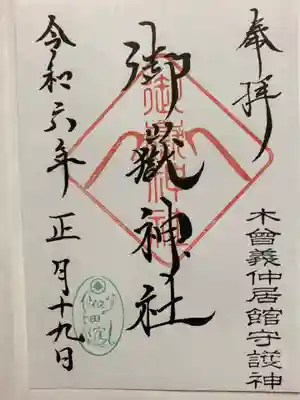 奉拝
木曾義仲居館守護神
御嶽神社
令和六年正月十九日